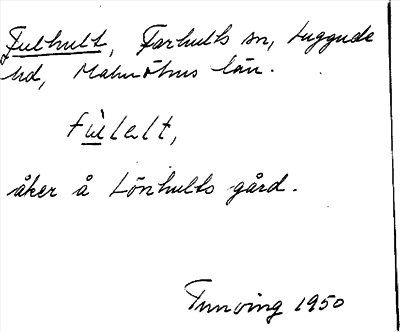 Fulhult, Farhults sn, Luggude
hd, Malmöhus län.
åker å Lönhults gård.
Tunving 1950